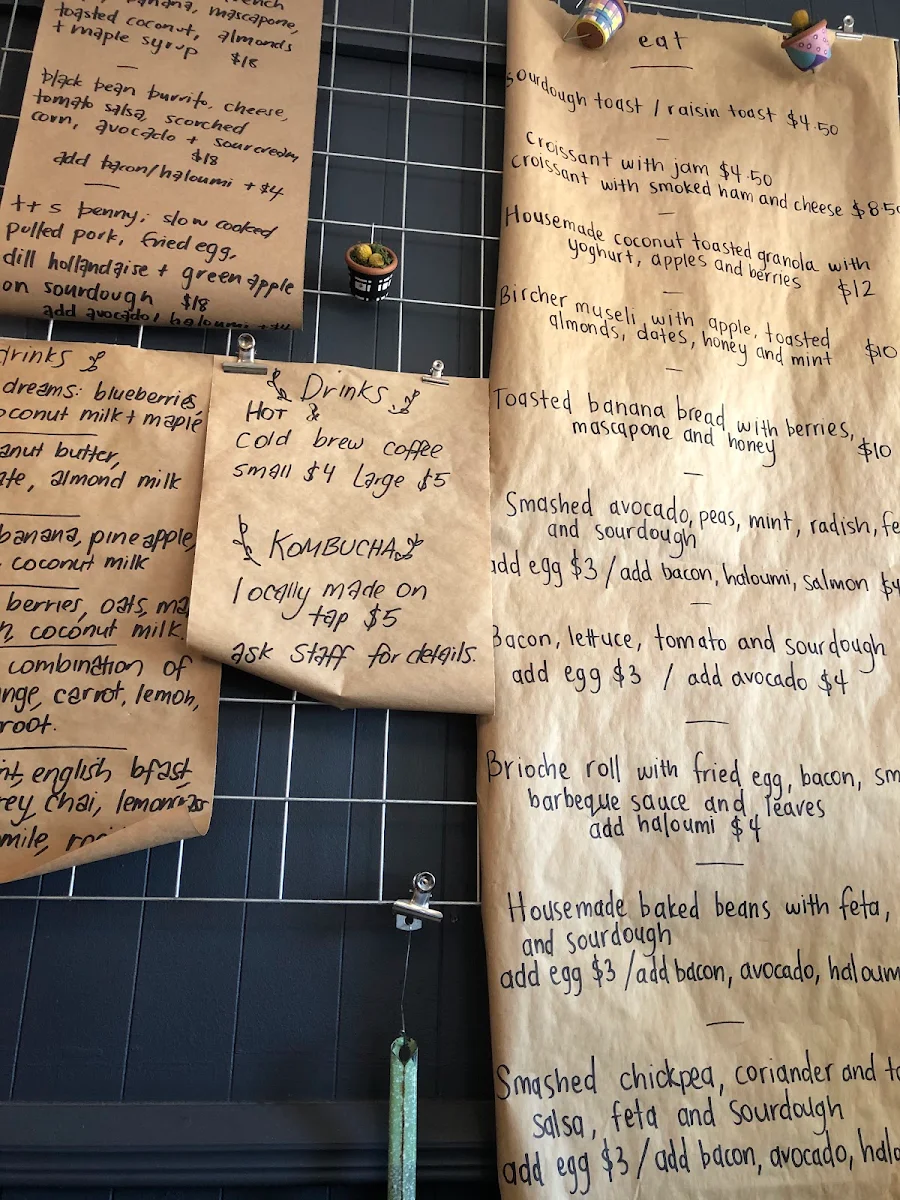 banana, mascapone,
toasted coconut, almonds
+ maple syrup $18
black bean burrito, cheese,
tomato salsa, scorched
corn, avocado + sourcream
$18
add bacon/haloumi + $4
tt s benny; slow cooked
pulled pork, fried egg,
dill hollandaise + green apple
on sourdough $18
add avocado, haloumi + $4
drinks
dreams: blueberries,
coconut milk + maple
anut butter,
almond milk
banana, pineapple,
coconut milk
berries, oats,
coconut milk.
combination of
carrot, lemon,
english bfast
chai,
Drinks
HOT &
cold brew coffee
small $4 Large $5
KOMBUCHA
locally made on
tap $5
ask staff for details.
eat
sourdough toast / raisin toast $4.50
Croissant with jam $4.50
croissant with smoked ham and cheese $8.50
Housemade coconut toasted granola with
yoghurt, apples and berries $12
Bircher museli, with apple, toasted
almonds, dates, honey and mint $10
Toasted banana bread with berries,
mascapone and honey $10
Smashed avocado, peas, mint, radish, fe
and sourdough
add egg $3 / add bacon, haloumi, salmon $4
Bacon, lettuce, tomato and sourdough
add egg $3 / add avocado $4
Brioche roll with fried egg, bacon, sm
barbeque sauce and leaves
add haloumi $4
Housemade baked beans with feta,
and sourdough
add egg $3 / add bacon, avocado, haloum
Smashed chickpea, coriander and to
salsa, feta and sourdough
add egg $3 / add bacon, avocado, halo